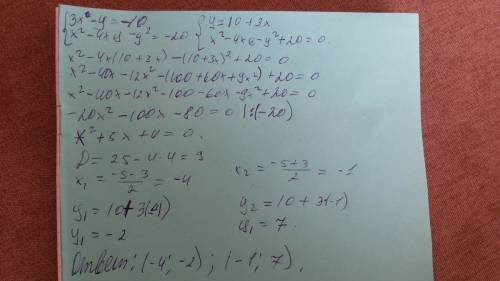 {3x - y = -10, {y = 10 + 3x
{x² - 4xy - y² = -20 {x² - 4xy - y² + 20 = 0.
x² - 4x(10 + 3x) - (10 + 3x)² + 20 = 0.
x² - 40x - 12x² - (100 + 60x + 9x²) + 20 = 0
x² - 40x - 12x² - 100 - 60x - 9x² + 20 = 0
-20x² - 100x - 80 = 0 | :(-20)
x² + 5x + 4 = 0.
D = 25 - 4·4 = 9
x₁ = (-5 - 3)/2 = -4 x₂ = (-5 + 3)/2 = -1
y₁ = 10 + 3(-4) y₂ = 10 + 3(-1)
y₁ = -2 y₁ = 7.
Ответ: (-4; -2) ; (-1; 7).